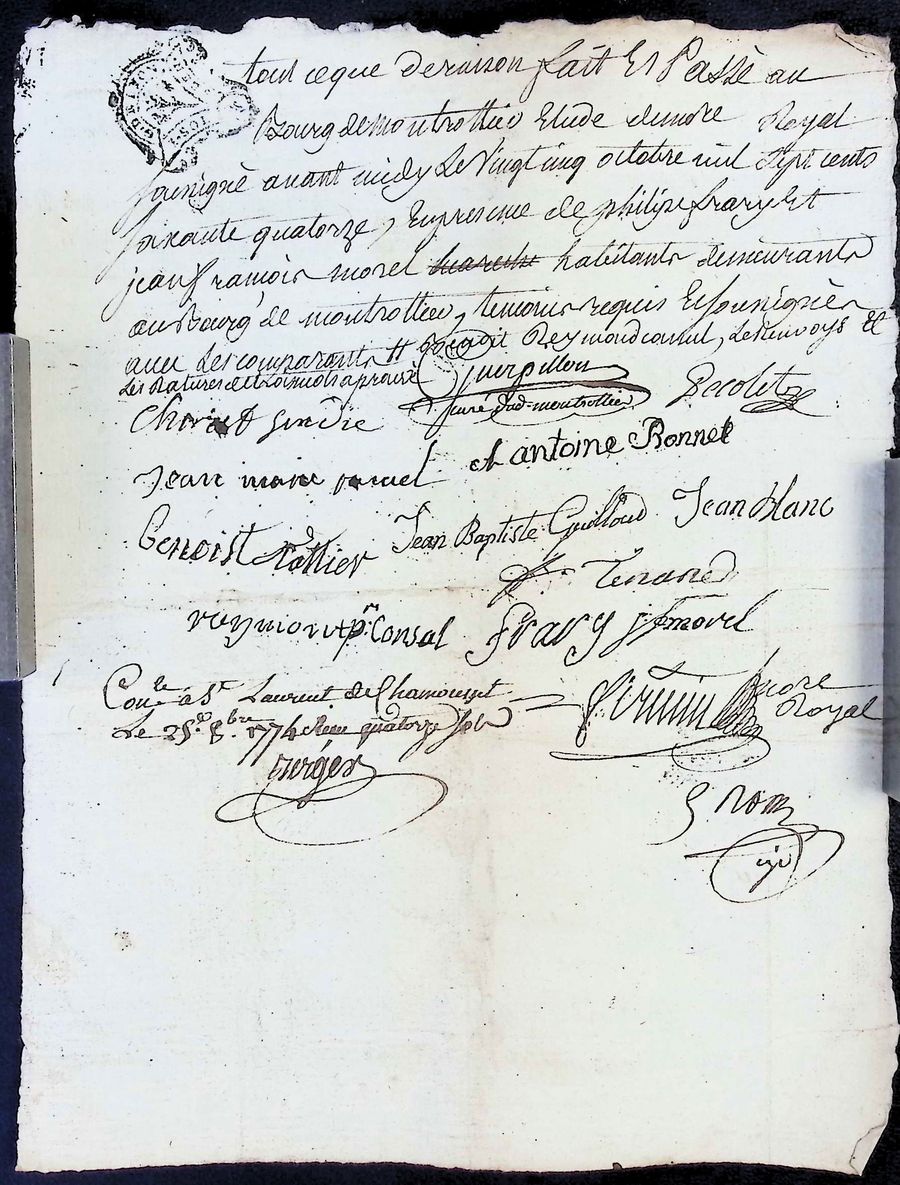 tout ceque deraison fait Et Passé au
Bourg de montrottier Etude du nore Royal
sousigné avant midy Le Vingt cinq octobre mil Sept cents
soixante quatorze, En presence de philipe frary Et
jean francois morel habitants demeurants
au Bourg de montrottier, temoins requis Et sousignés
avec Les comparants # Benoit Reymond consul, Les renvoys Et
Les Ratures de trois mots aprouvé
Guerpillon
curé d'ad-montrottier
Pecolet
Chorat sindic
Jean marie
et antoine Bonnet
Benoist
Jean Baptiste Guilloud
Jean Blanc
Tenaned
reymont pr Consul
Frary
jf morel
Conlé a St Laurent de Chamousset
Le 25e 8bre 1774 quatorze sols
nore
Royal